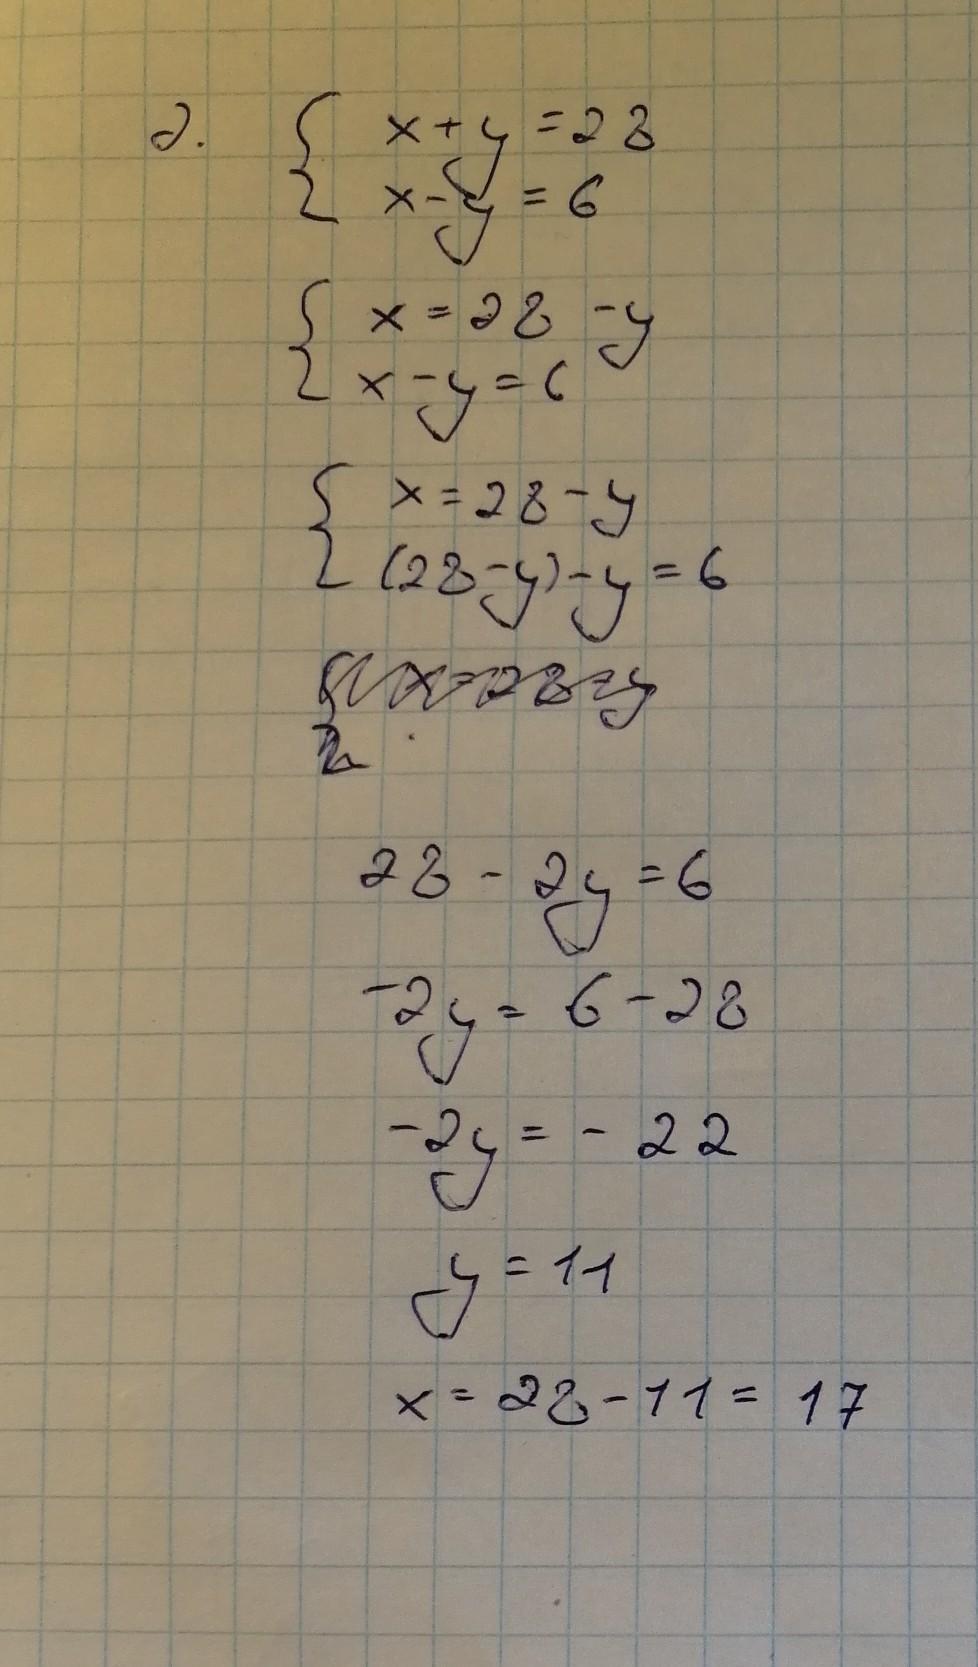 2. { x+y=28
x-y=6
{ x=28-y
x-y=6
{ x=28-y
(28-y)-y=6
{ x=28-y
28-2y=6
-2y=6-28
-2y=-22
y=11
x=28-11=17